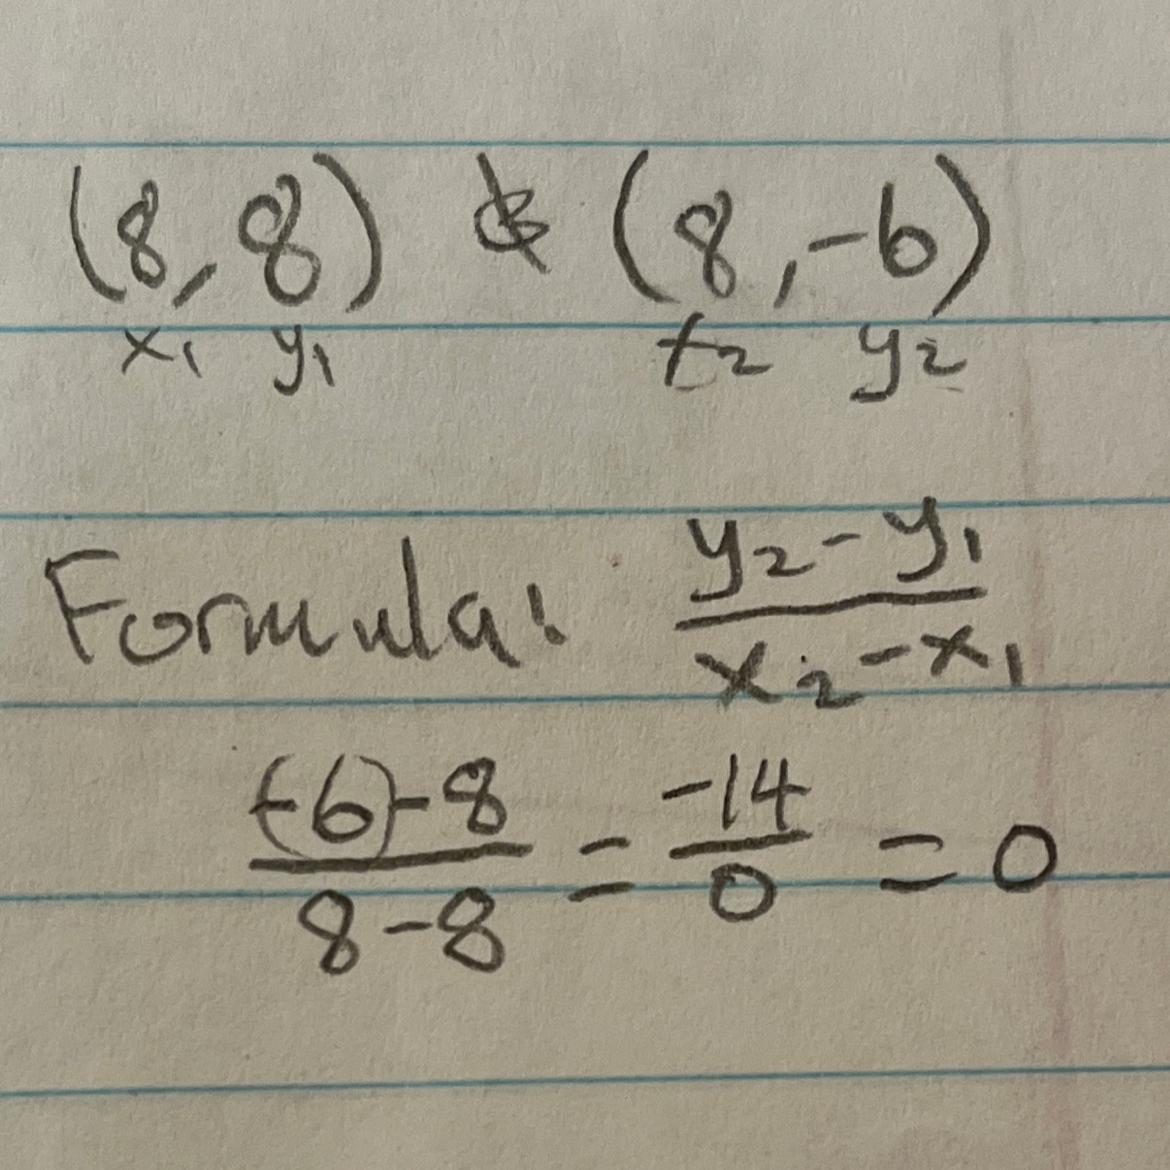 (8, 8) & (8, -6)
x₁ y₁ x₂ y₂
Formula: y₂ - y₁ / x₂ - x₁
(-6) - 8 / 8 - 8 = -14 / 0 = 0